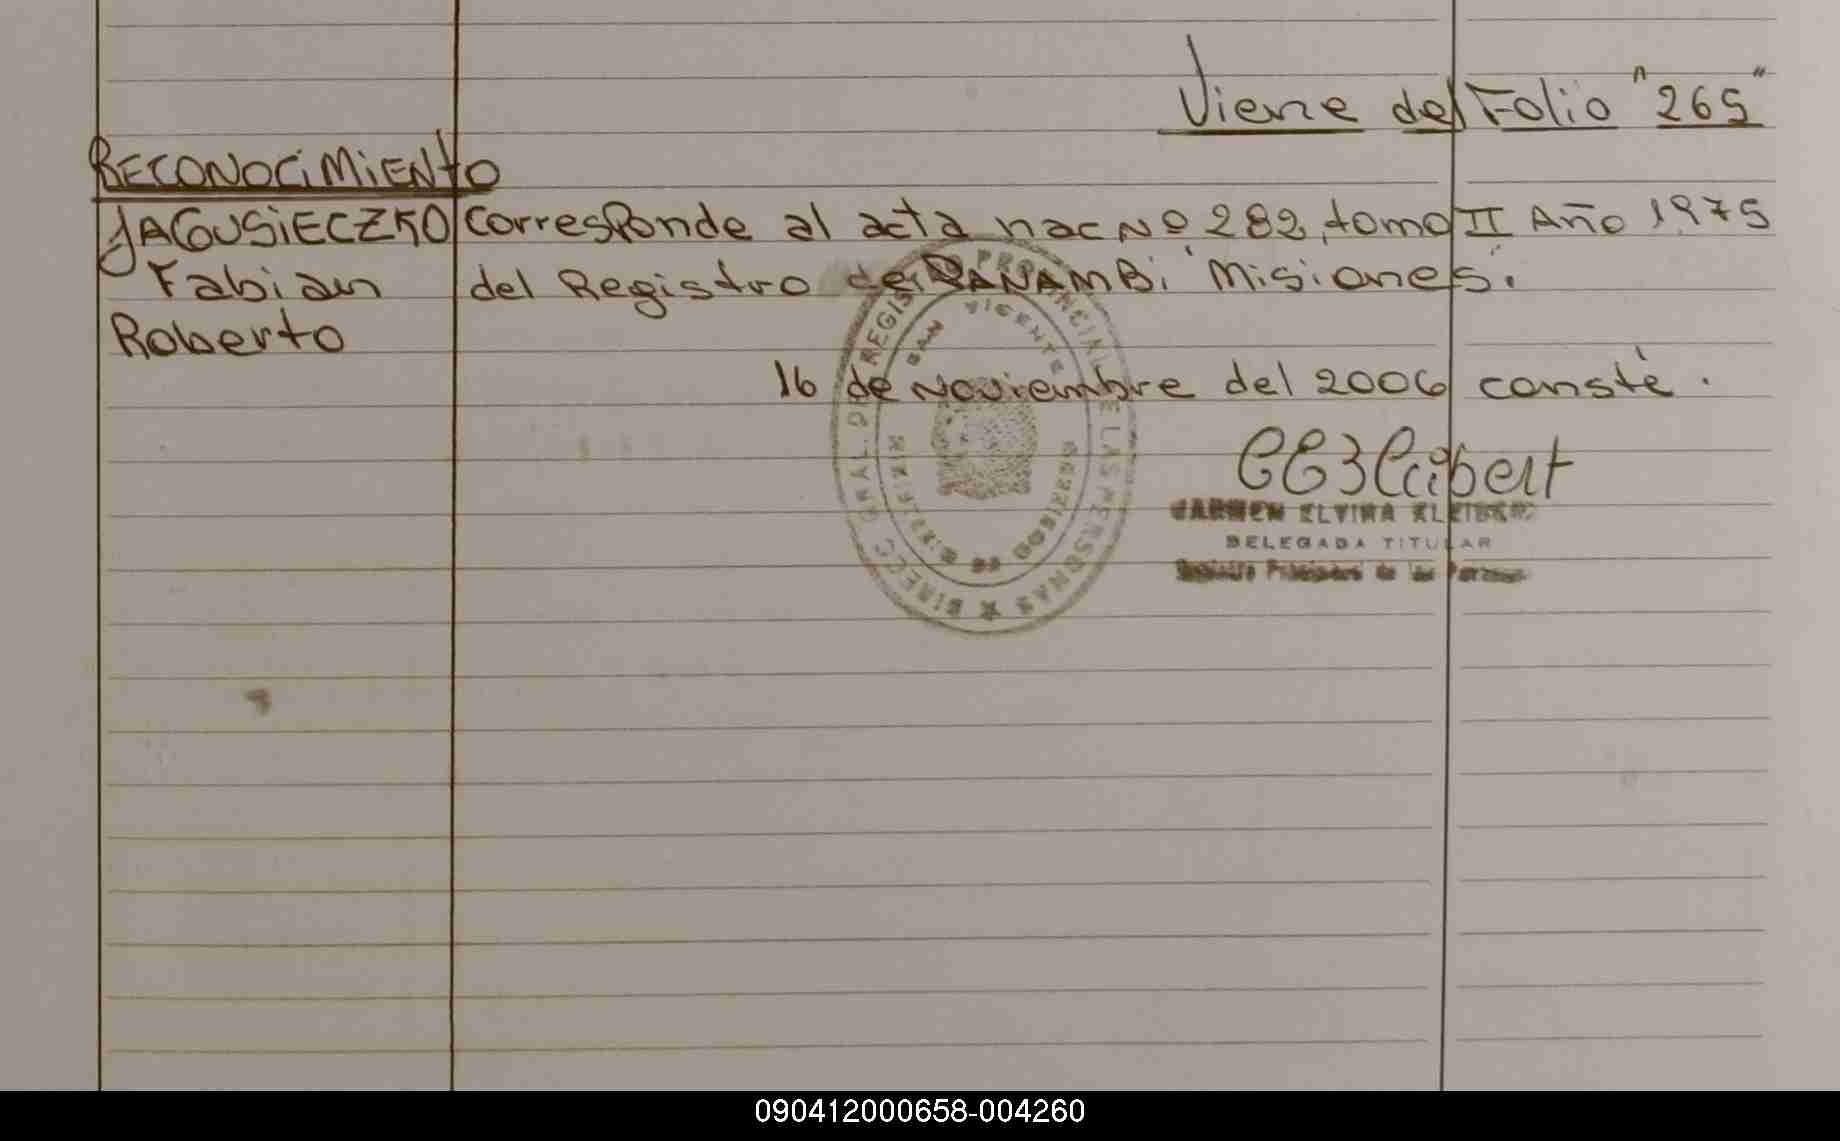 Viene del Folio "265"
RECONOCIMIENTO
JAGUSIECZKO Corresponde al acta nac Nº 282, tomo II Año 1975
Fabian del Registro de PANAMBi Misiones.
Roberto
16 de Noviembre del 2006 conste.
CARMEN ELVIRA KLEIBERT
DELEGADA TITULAR
Registro Provincial de las Personas
DIREC GRAL. DE REGIS PROVINCIAL DE LAS PERSONAS
SAN VICENTE
090412000658-004260